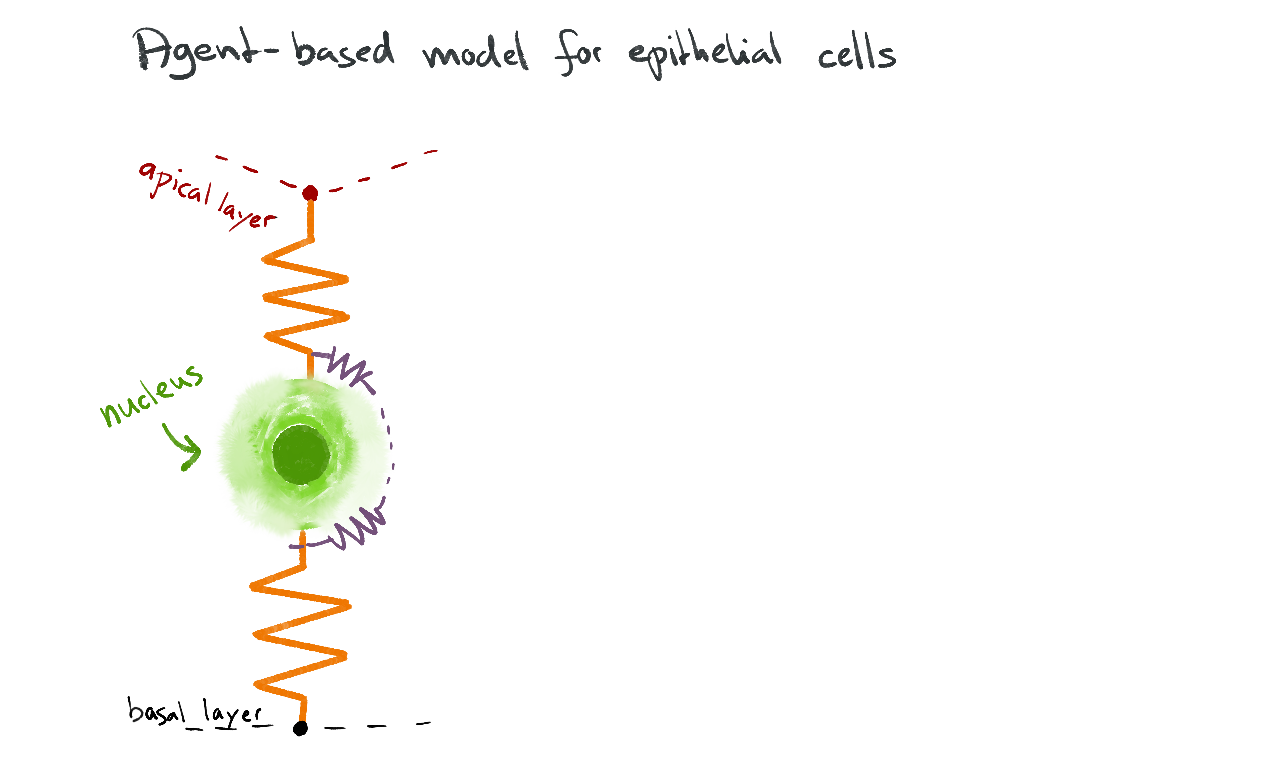 Agent-based model for epithelial cells
apical layer
nucleus
basal layer